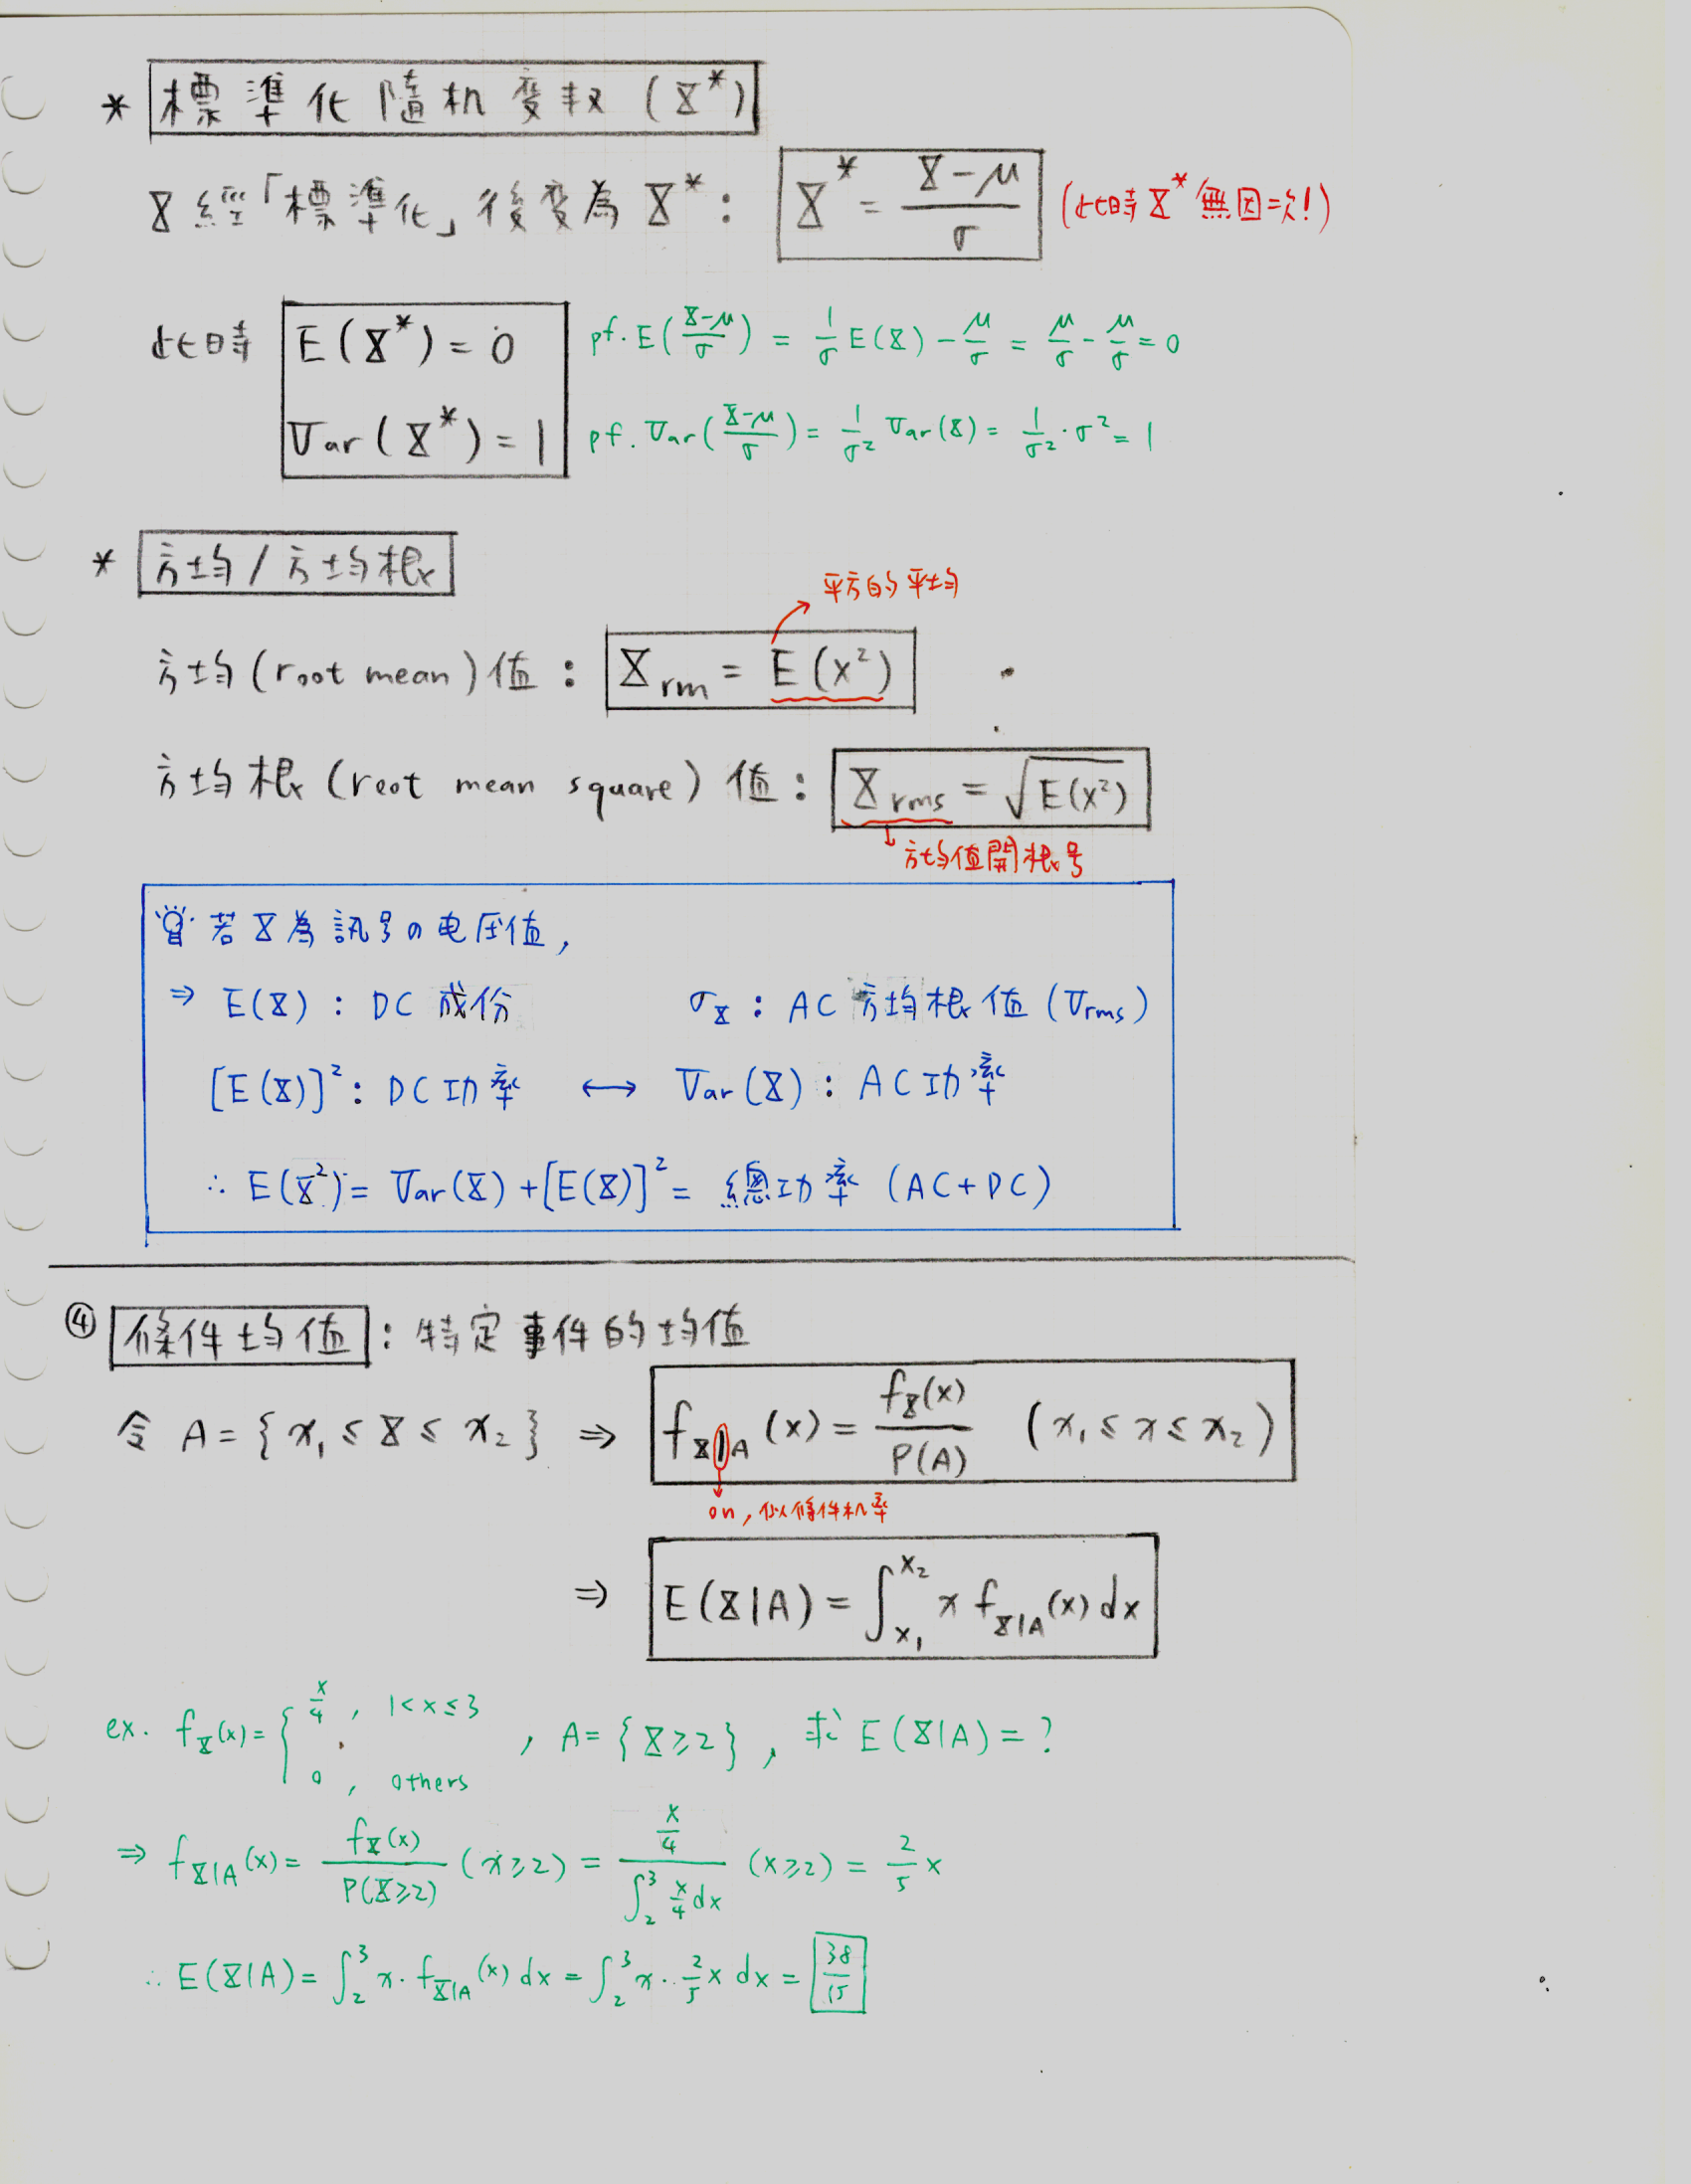 * 標準化隨机变叔 (X*)
X 經「標準化」後变為 X* : X* = (X-μ)/σ (此時 X* 無因次!)
此時 E(X*) = 0 pf. E((X-μ)/σ) = 1/σ E(X) - μ/σ = μ/σ - μ/σ = 0
Var(X*) = 1 pf. Var((X-μ)/σ) = 1/σ² Var(X) = 1/σ² · σ² = 1
* 方均 / 方均根
平方的平均
方均 (root mean) 值 : X rm = E(x²)
方均根 (root mean square) 值 : X rms = √E(x²)
方均值開根号
若 X 為訊号の电压值,
⇒ E(X) : DC 成份 σX : AC 方均根值 (Vrms)
[E(X)]² : DC功率 ↔ Var(X) : AC功率
∴ E(X²) = Var(X) + [E(X)]² = 總功率 (AC+DC)
④ 條件均值 : 特定事件的均值
令 A = { x₁ ≤ X ≤ x₂ } ⇒ fX|A (x) = fX(x)/P(A) (x₁ ≤ x ≤ x₂)
on, 似條件机率
⇒ E(X|A) = ∫x₁^x₂ x fX|A (x) dx
ex. fX(x) = { x/4 , 1<x≤3
0 , others , A = { X ≥ 2 } , 求 E(X|A) = ?
⇒ fX|A (x) = fX(x)/P(X≥2) (x≥2) = (x/4)/(∫₂³ x/4 dx) (x≥2) = 2/5 x
∴ E(X|A) = ∫₂³ x · fX|A (x) dx = ∫₂³ x · 2/5 x dx = 38/15